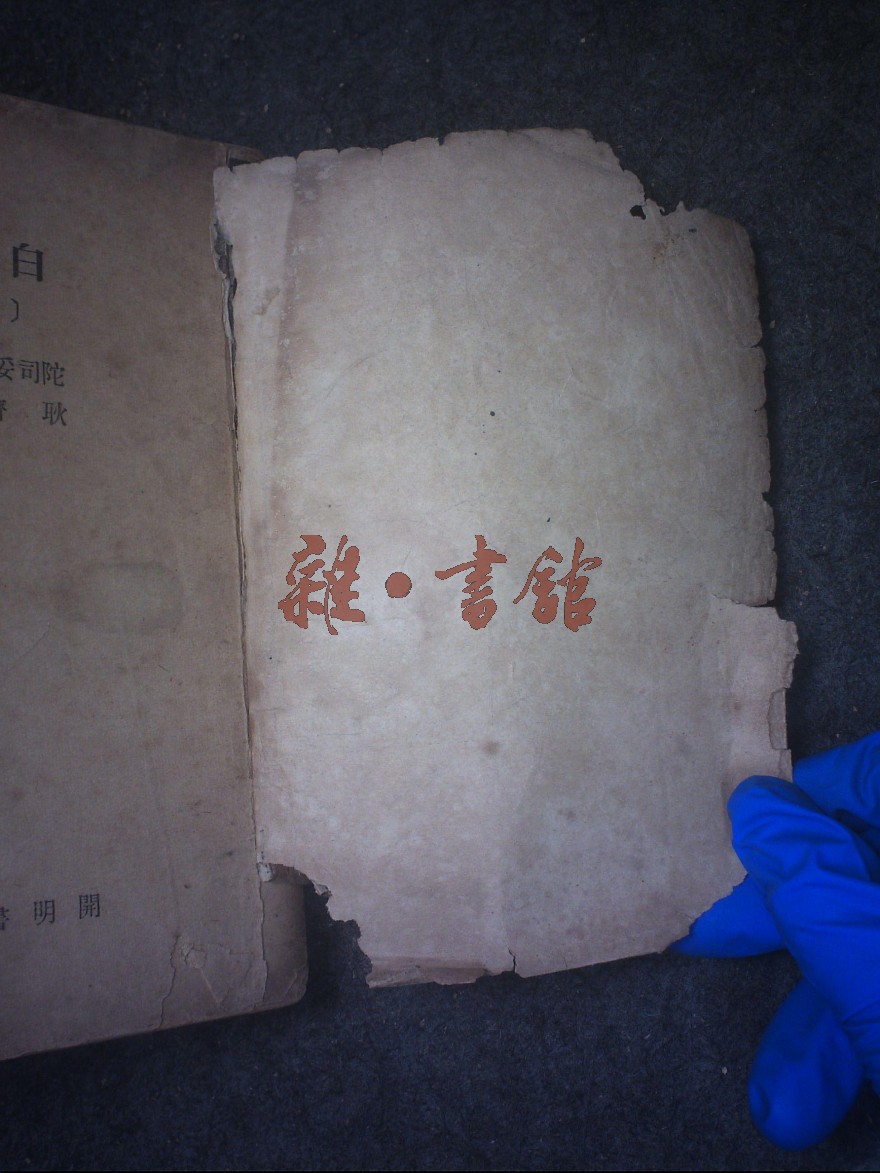 白
〕
陀司妥
耿
開明書
雜•書館